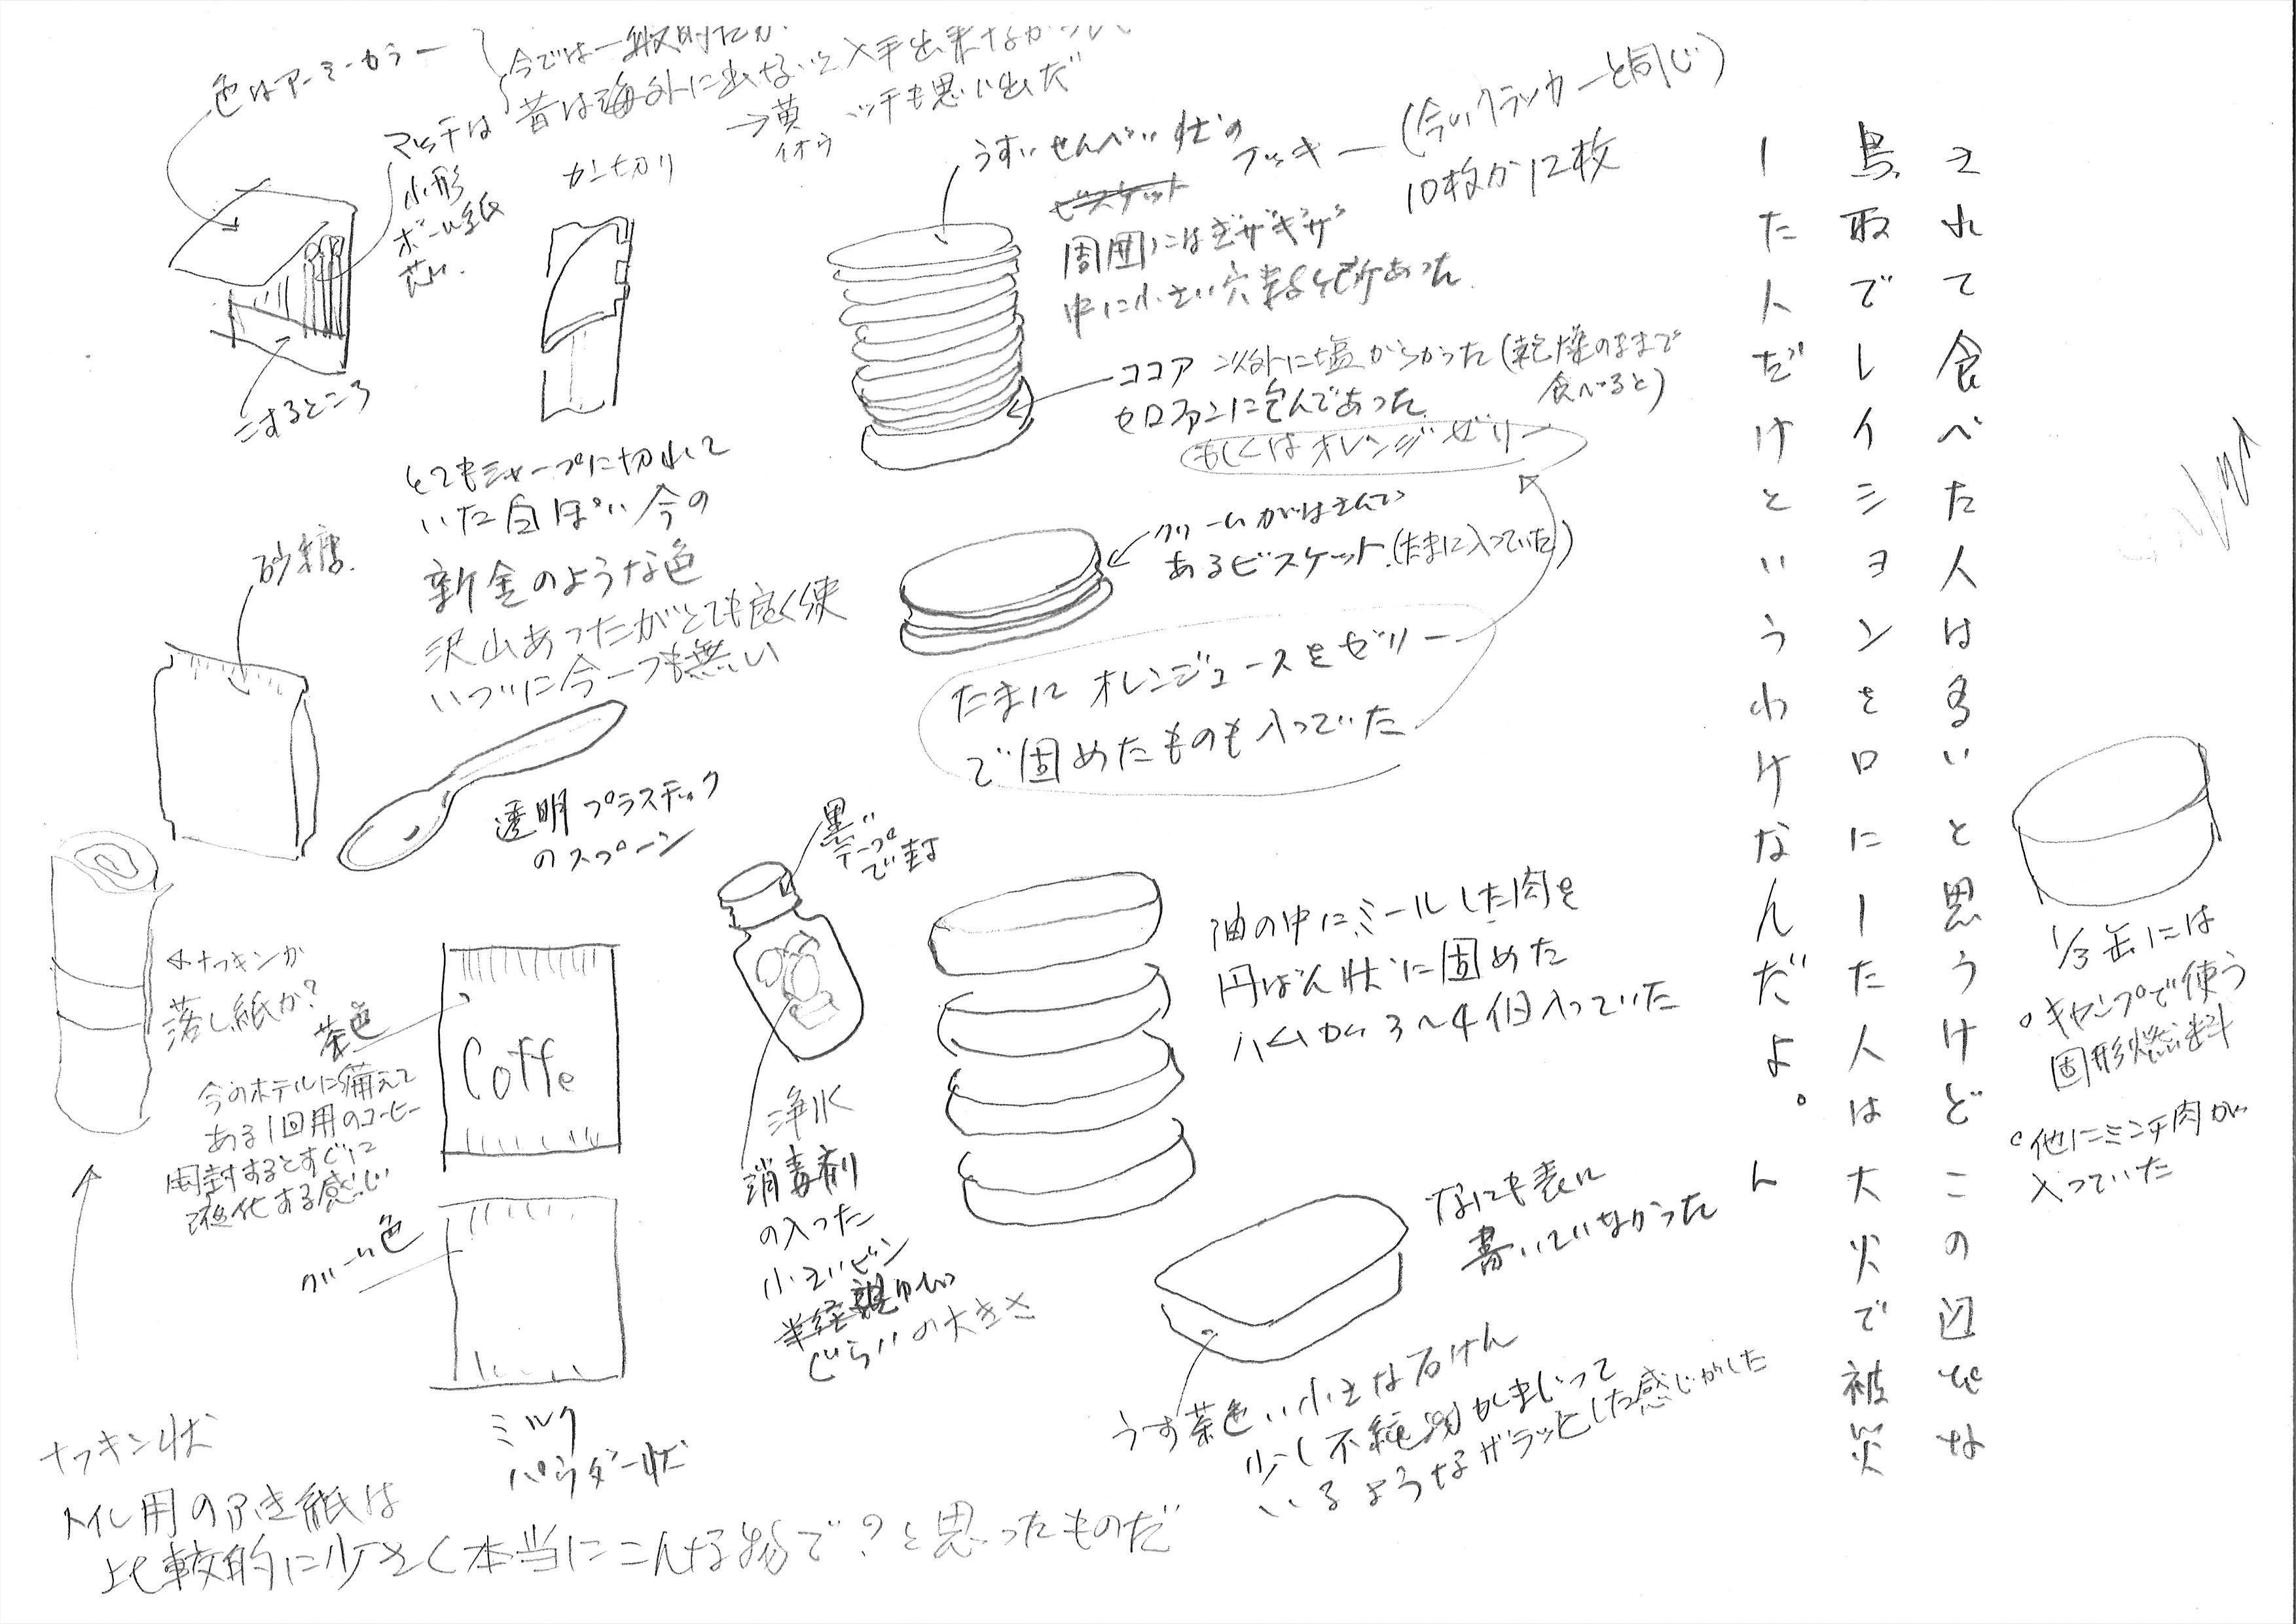 色はアーミーカラー
今では一般的だが
マッチは 昔は海外に出ないと入手出来なかった
→黄 マッチも思い出だ
イオウ
小形
ボール紙
こするところ
カン切り
とてもシャープに切れて
いた白ぽい今の
新金のような色
沢山あったがとても良く使
いづいに今一つも無い
うすいせんべい状の
クッキー(今のクラッカーと同じ)
ビスケット
10枚か12枚
周囲にはギザギザ
中に小さい穴が数ヶ所あった
ココア 以外に塩からかった(乾燥のままで
食べると)
セロファンに包んであった
もしくはオレンジゼリー
クリームがはさんで
あるビスケット(たまに入っていた)
たまにオレンジジュースをゼリー
で固めたものも入っていた
砂糖
透明プラスチック
のスプーン
黒い
テープ
で封
浄水
消毒剤
の入った
小さいビン
半径親ゆび
ぐらいの大きさ
油の中にミールした肉を
円ばん状に固めた
ハムが 3〜4個入っていた
なにも表に
書いていなかった
うす茶色い小さな石けん
少し不純物がまじって
いるようなザラッとした感じがした
←ナフキンか
落し紙か?
茶色
Coffe
今のホテルに備えて
ある1回用のコーヒー
開封するとすぐに
液化する感じ
クリーム色
ミルク
パウダー状
ナフキン状
トイレ用のふき紙は
比較的に少さく本当にこんな物で?と思ったものだ
1/3缶には
○キャンプで使う
固形燃料
○他にミンチ肉が
入っていた
されて食べた人は多いと思うけどこの辺でな
鳥取でレイションを口にーた人は大火で被災
ーた人だけというわけなんだよ。ん